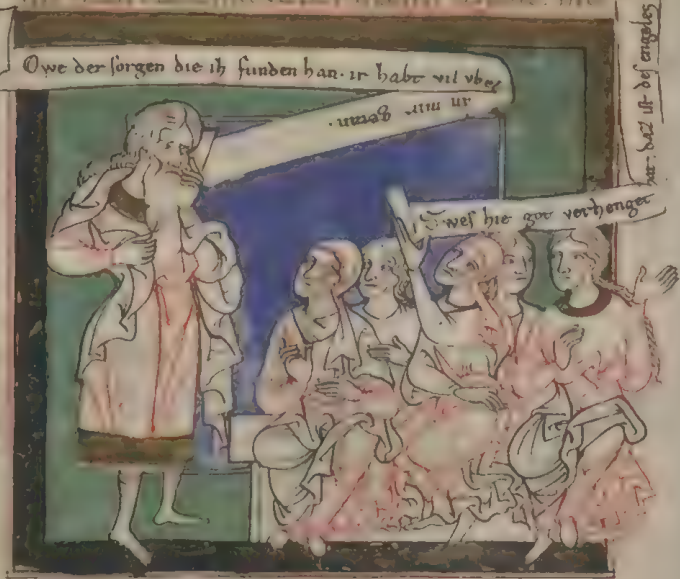 Owe der sorgen die ih funden han. ir habt vil vbel
an mir getan.
Swes hie got verhenget
hat. daz ist des engeles